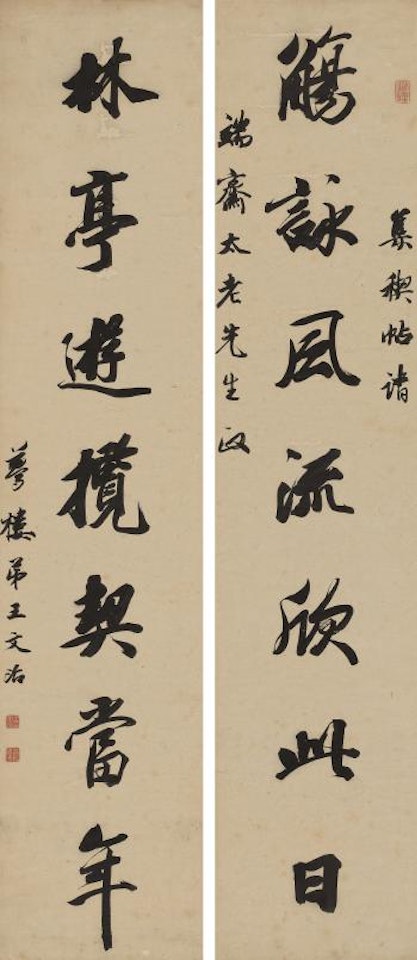 集禊帖請
觴詠風流欣此日
端齋太老先生政
林亭遊攬契當年
夢樓弟王文治